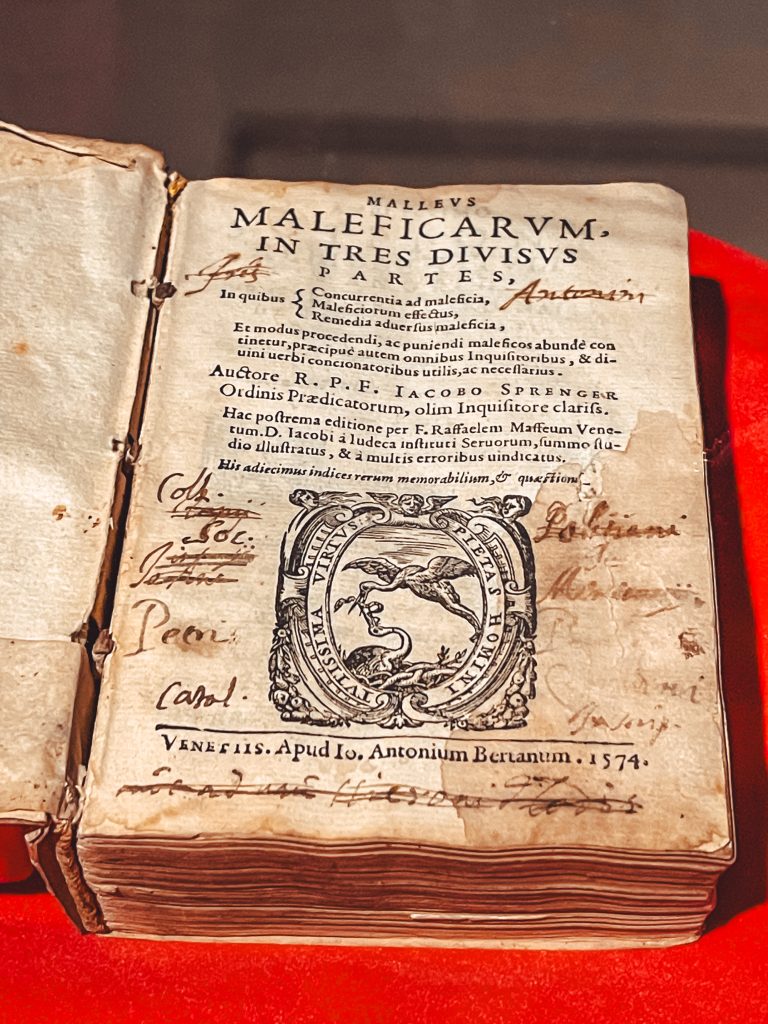 MALLEVS
MALEFICARVM,
IN TRES DIVISVS
PARTES,
In quibus { Concurrentia ad maleficia,
Maleficiorum effectus,
Remedia aduersus maleficia,
Antonini
Et modus procedendi, ac puniendi maleficos abundè con
tinetur, præcipuè autem omnibus Inquisitoribus, & di-
uini uerbi concionatoribus utilis, ac necessarius.
Auctore R. P. F. IACOBO SPRENGER
Ordinis Prædicatorum, olim Inquisitore clariss.
Hac postrema editione per F. Raffaelem Maffeum Vene-
tum. D. Iacobi à Iudeca instituti Seruorum, summo stu-
dio illustratus, & à multis erroribus uindicatus.
His adiecimus indices rerum memorabilium, & quæstion
Coll.
Soc.
Petri
Carol.
TVTISSIMA VIRTVS
PIETAS HOMINI
VENETIIS. Apud Io. Antonium Bertanum. 1574.